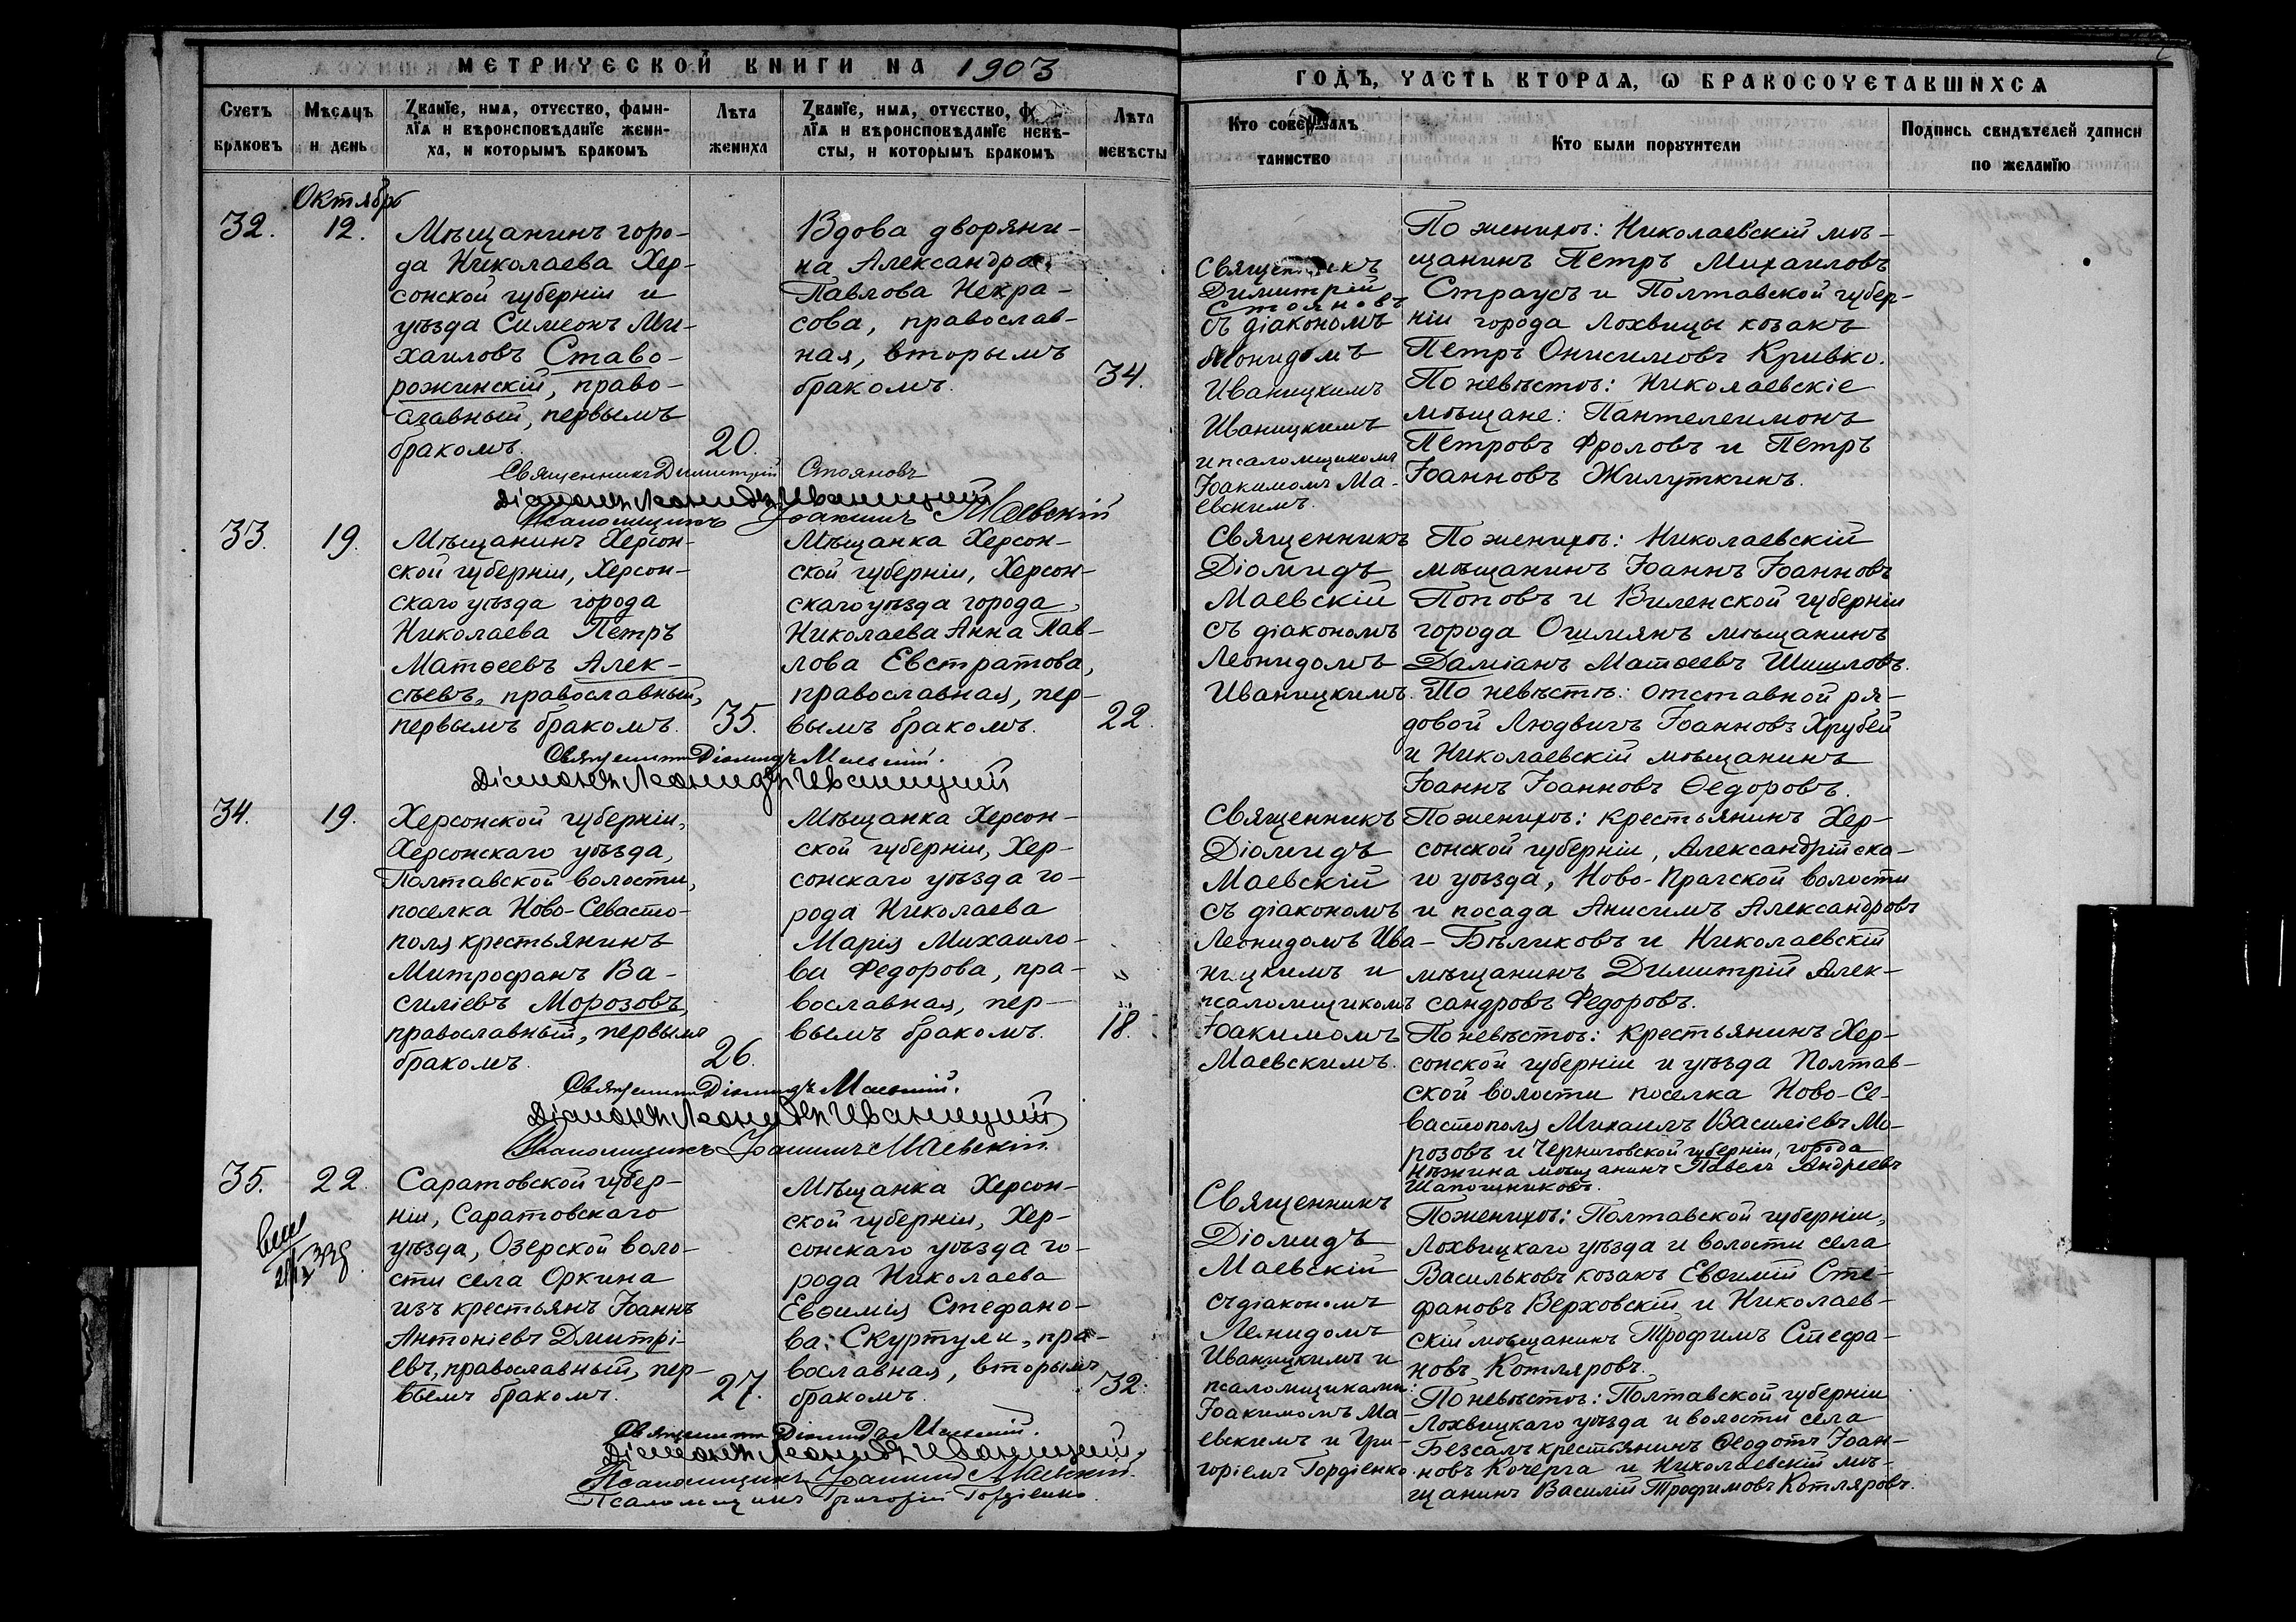 МЕТРИЧЕСКОЙ КНИГИ НА 1903
ГОДЪ, ЧАСТЬ ВТОРАЯ, Ѡ БРАКОСОЧЕТАВШИХСЯ
Счетъ
браковъ
Мѣсяцъ
и день
Званїе, имя, отчество, фами-
лїя и вѣроисповѣданїе жени-
ха, и которымъ бракомъ
Лѣта
жениха
Званїе, имя, отчество,
лїя и вѣроисповѣданїе невѣ-
сты, и которымъ бракомъ
Лѣта
невѣсты
Кто совершалъ
таинство
Кто были поручители
Подпись свидѣтелей записи
по желанїю
Октябрь
32.
12.
Мѣщанинъ горо-
да Николаева Хер-
сонской губерніи и
уѣзда Симеонъ Ми-
хаиловъ Ставо-
рожинскій, право-
славный, первымъ
бракомъ.
20.
Вдова дворяни-
на Александра
Павлова Некра-
сова, православ-
ная, вторымъ
бракомъ.
34.
Священникъ
Димитрій
Стояновъ
съ діакономъ
Леонидомъ
Иваницкимъ
Иваницкимъ
и псаломщикомъ
Іоакимомъ Ма-
евскимъ.
По женихѣ: Николаевскій мѣ-
щанинъ Петръ Михаиловъ
Страусъ и Полтавской губер-
ніи города Лохвицы козакъ
Петръ Онисимовъ Кривко.
По невѣстѣ: Николаевскіе
мѣщане: Пантелеимонъ
Петровъ Фроловъ и Петръ
Іоанновъ Жилуткинъ.
Священникъ Димитрій Стояновъ
Діаконъ Леонидъ Иваницкій
Псаломщикъ Іоакимъ Маевскій
33.
19.
Мѣщанинъ Херсон-
ской губерніи, Херсон-
скаго уѣзда города
Николаева Петръ
Матѳеевъ Алек-
сѣевъ, православный,
первымъ бракомъ.
35.
Мѣщанка Херсон-
ской губерніи, Херсон-
скаго уѣзда города
Николаева Анна Пав-
лова Евстратова,
православная, пер-
вымъ бракомъ.
22.
Священникъ
Діомидъ
Маевскій
съ діакономъ
Леонидомъ
Иваницкимъ.
По женихѣ: Николаевскій
мѣщанинъ Іоаннъ Іоанновъ
Поповъ и Виленской губерніи
города Ошмянъ мѣщанинъ
Даміанъ Матѳеевъ Шишловъ.
По невѣстѣ: отставной ря-
довой Людвигъ Іоанновъ Хрубей
и Николаевскій мѣщанинъ
Іоаннъ Іоанновъ Ѳедоровъ.
Священникъ Діомидъ Маевскій.
Діаконъ Леонидъ Иваницкій
34.
19.
Херсонской губерніи,
Херсонскаго уѣзда,
Полтавской волости,
поселка Ново-Севасто-
поля крестьянинъ
Митрофанъ Ва-
силіевъ Морозовъ,
православный, первымъ
бракомъ.
26.
Мѣщанка Херсон-
ской губерніи, Хер-
сонскаго уѣзда го-
рода Николаева
Марія Михаило-
ва Федорова, пра-
вославная, пер-
вымъ бракомъ.
18.
Священникъ
Діомидъ
Маевскій
съ діакономъ
Леонидомъ Ива-
ницкимъ и
псаломщикомъ
Іоакимомъ
Маевскимъ.
По женихѣ: крестьянинъ Хер-
сонской губерніи, Александрійска-
го уѣзда, Ново-Прагской волости
и посада Анисимъ Александровъ
Бѣликовъ и Николаевскій
мѣщанинъ Димитрій Алек-
сандровъ Федоровъ.
По невѣстѣ: крестьянинъ Хер-
сонской губерніи и уѣзда Полтав-
ской волости поселка Ново-Се-
вастополя Михаилъ Василіевъ Мо-
розовъ и Черниговской губерніи, города
Нѣжина мѣщанинъ Павелъ Андреевъ
Шапошниковъ.
Священникъ Діомидъ Маевскій.
Діаконъ Леонидъ Иваницкій
Псаломщикъ Іоакимъ Маевскій.
35.
22.
Саратовской губер-
ніи, Саратовскаго
уѣзда, Озерской воло-
сти села Оркина
изъ крестьянъ Іоаннъ
Антоніевъ Дмитрі-
евъ, православный, пер-
вымъ бракомъ.
27.
Мѣщанка Херсон-
ской губерніи, Хер-
сонскаго уѣзда го-
рода Николаева
Евѳимія Стефано-
ва Скуртули, пра-
вославная, вторымъ
бракомъ.
32.
Священникъ
Діомидъ
Маевскій
съ діакономъ
Леонидомъ
Иваницкимъ и
псаломщиками:
Іоакимомъ Ма-
евскимъ и Гри-
горіемъ Гордіенко.
По женихѣ: Полтавской губерніи,
Лохвицкаго уѣзда и волости села
Васильковъ козакъ Евѳимій Сте-
фановъ Верховскій и Николаев-
скій мѣщанинъ Трофимъ Стефа-
новъ Котляровъ.
По невѣстѣ: Полтавской губерніи
Лохвицкаго уѣзда и волости села
Безсалъ крестьянинъ Ѳеодотъ Іоан-
новъ Кочерга и Николаевскій мѣ-
щанинъ Василій Трофимовъ Котляровъ.
Священникъ Діомидъ Маевскій.
Діаконъ Леонидъ Иваницкій.
Псаломщикъ Іоакимъ Маевскій.
Псаломщикъ Григорій Гордіенко.